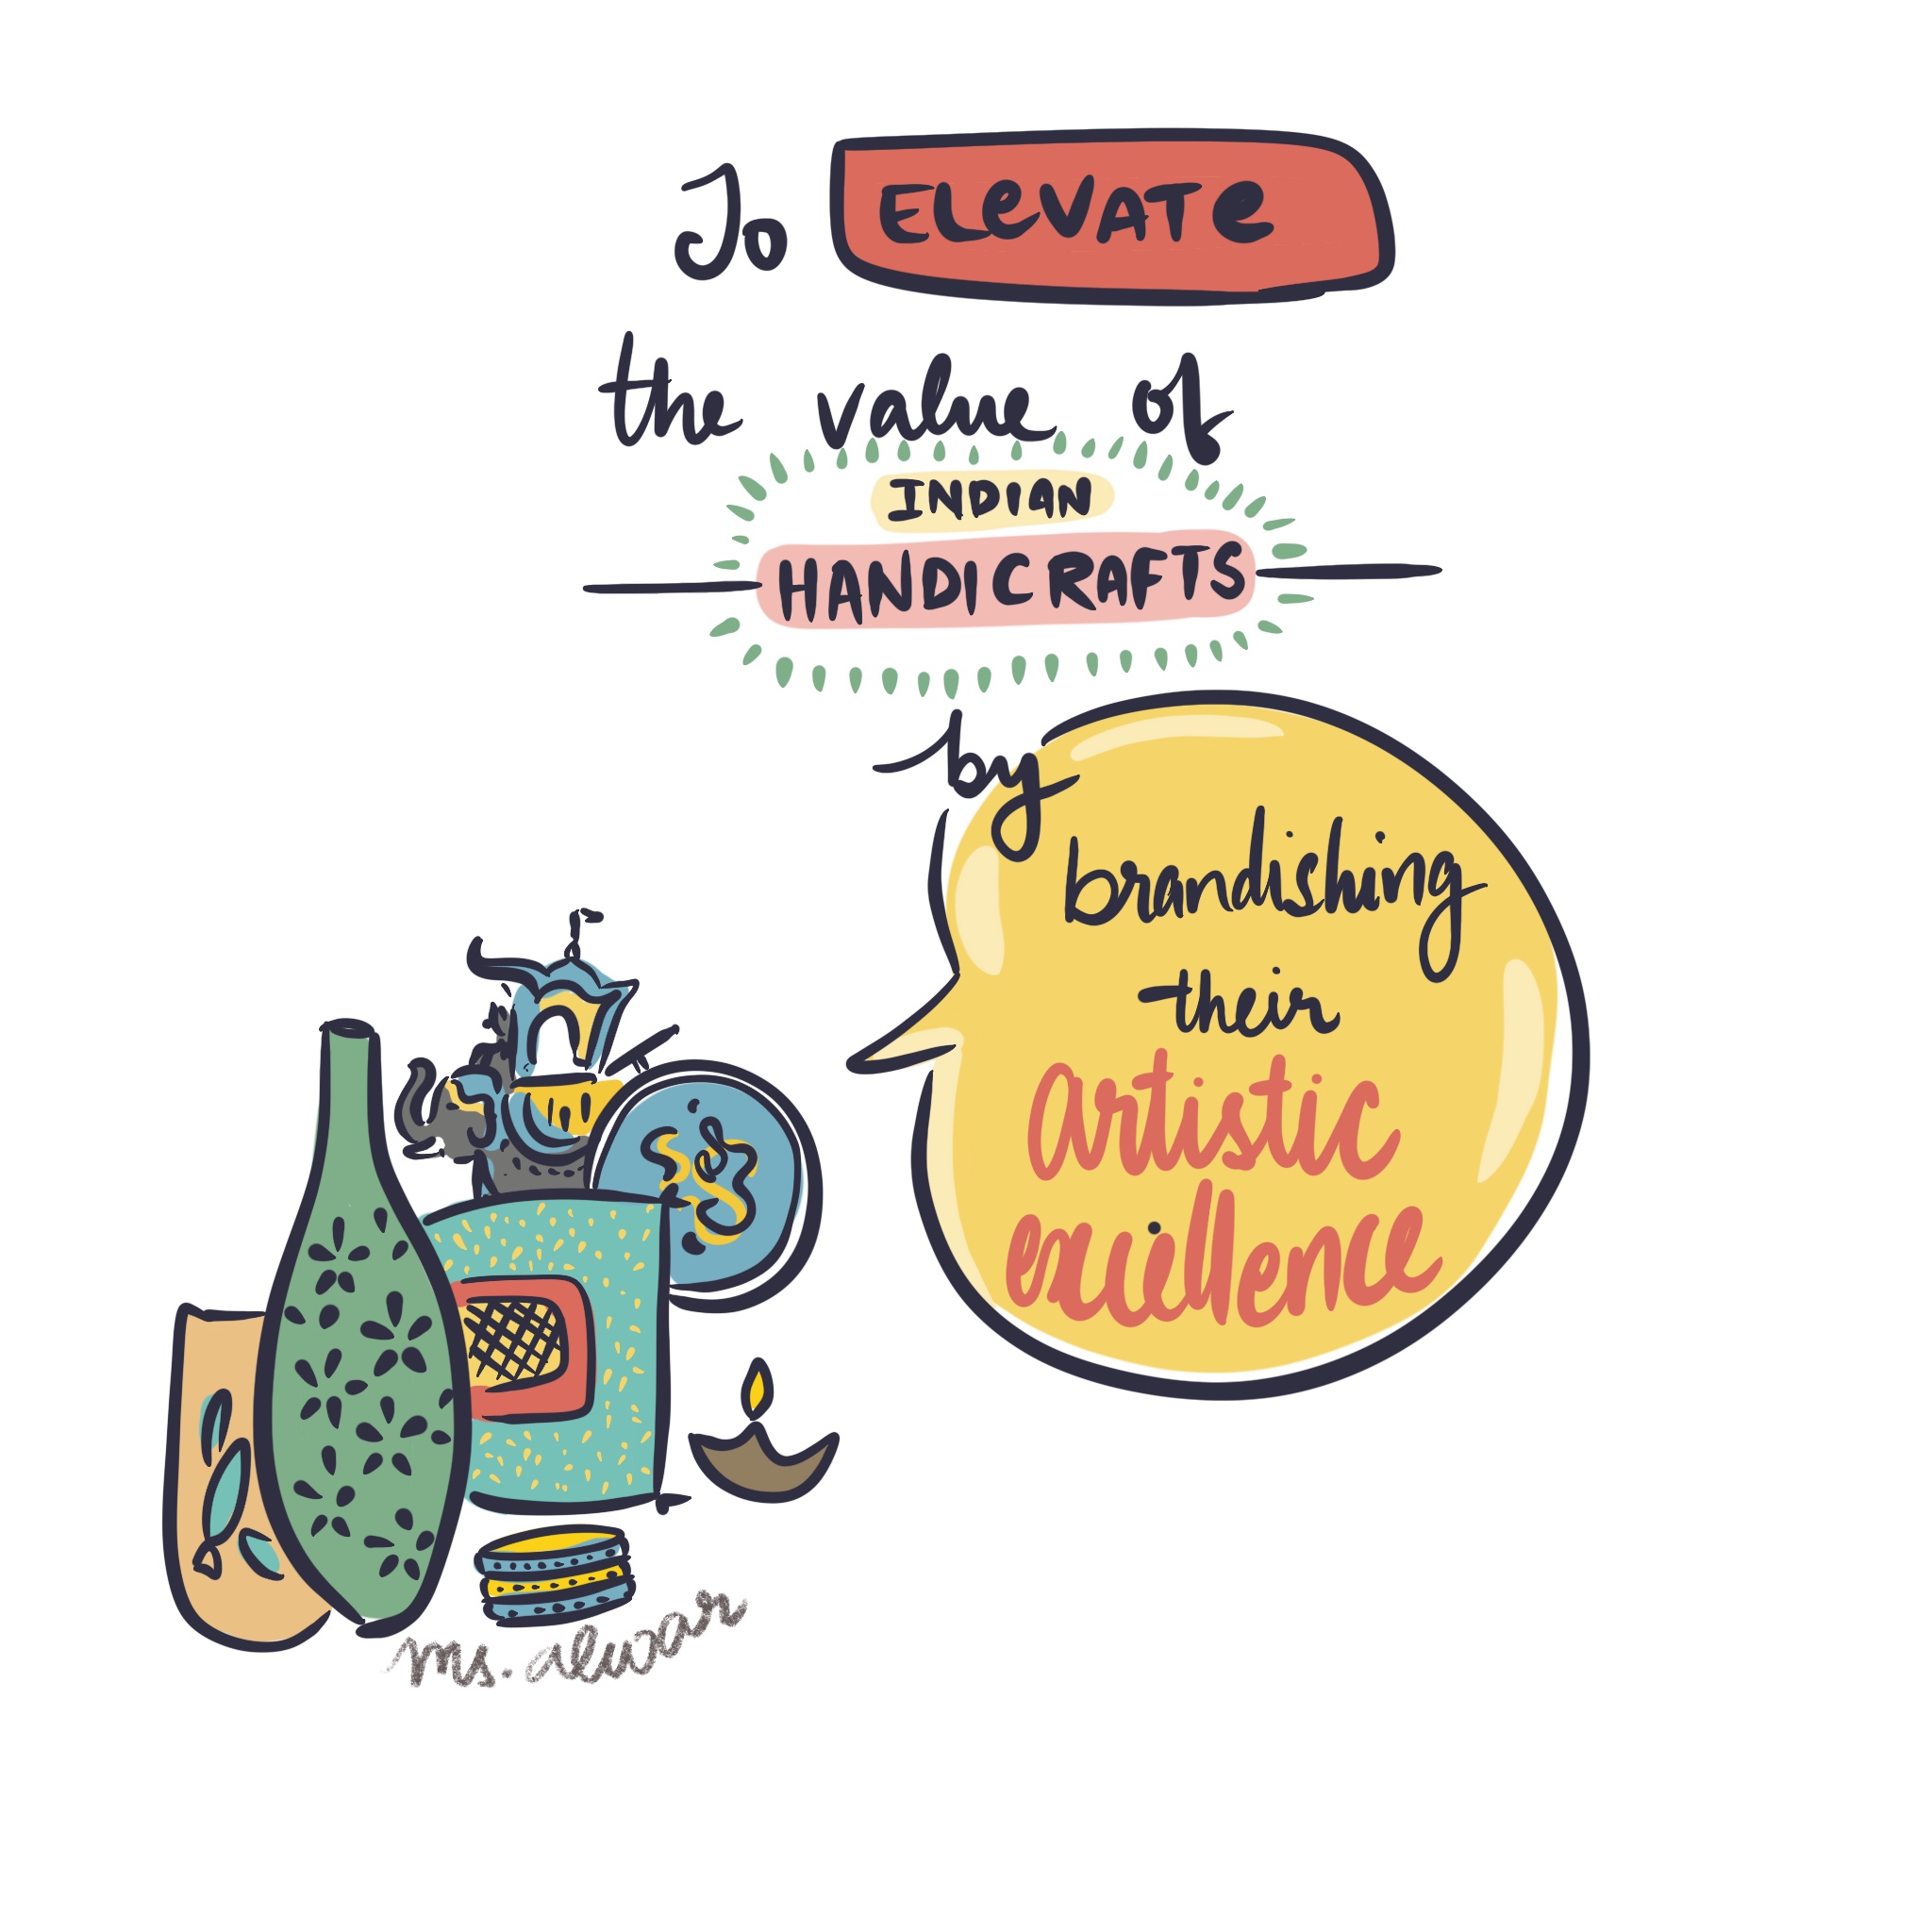 To ELeVATe
the value of
INDIAN
HANDICRAFTS
by
brandishing
their
artistic
excellence
ms. alwar